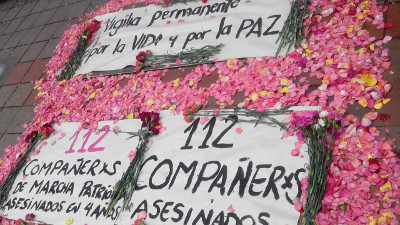 Vigilia permanente
por la VIDA y por la PAZ
112
COMPAÑER×S
DE MARCHA PATRIÓ
ASESINADOS EN 4 AÑOS
112
COMPAÑER×S
ASESINADOS